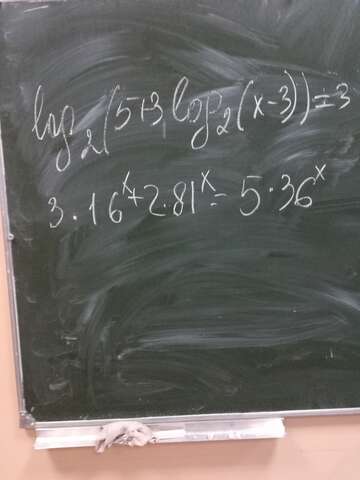 log₂(5+3log₂(x-3))=3
3·16ˣ+2·81ˣ=5·36ˣ